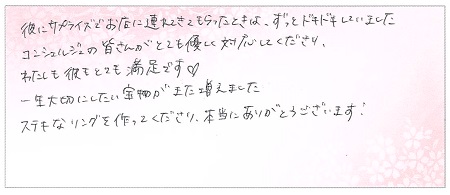 彼にサプライズでお店に連れてきてもらったときは、ずっとドキドキしていました
コンシェルジュの皆さんがとても優しく対応してくださり、
わたしも彼もとても満足です♡
一生大切にしたい宝物がまた増えました
ステキなリングを作ってくださり、本当にありがとうございます!